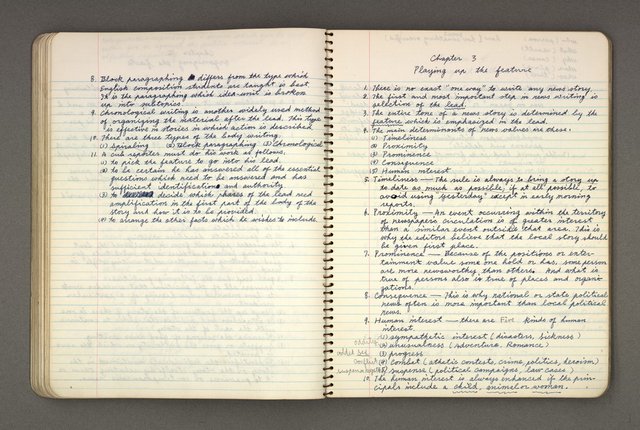 8. Block paragraphing differs from the type which
English composition students are taught is best.
It is the paragraphing which idea-unit is broken
up into subtopics.
9. Chronological writing is another widely used method
of organizing the material after the lead. This type
is effective in stories in which action is described.
10. There are three types of the body writing.
(1) Spiraling (2) Block paragraphing (3) Chronological
11. A cub reporter must do his work as follows,
(1) to pick the feature to go into his lead.
(2) to be certain he has answered all of the essential
questions which need to be answered and has
sufficient identifications and authority
(3) to decide which phases of the lead need
amplification in the first part of the body of the
story and how it is to be provided.
(4) to arrange the other facts which he wishes to include
Chapter 3
Playing up the feature
1. There is no exact "one way" to write any news story.
2. The first and most important step in news writing is
selection of the lead.
3. The entire tone of a news story is determined by the
feature which is emphasized in the lead.
4. The main determinants of news values are these:
(1) Timeliness
(2) Proximity
(3) Prominence
(4) Consequence
(5) Human interest
5. Timeliness — The rule is always to bring a story up
to date as much as possible, if at all possible, to
avoid using "yesterday" except in early morning
reports.
6. Proximity — An event occurring within the territory
of newspapers circulation is of greater interest
than a similar event outside that area. This is
why the editors believe that the local story should
be given first place.
7. Prominence — Because of the positions or enter-
tainment value some one hold or has, some person
are more newsworthy than others. And what is
true of persons also is true of places and organi-
zations.
8. Consequence — This is why national or state political
news often is more important than local political
news.
9. Human interest — there are Five kinds of human
interest.
(1) sympathetic interest (disasters, Sickness)
oddity (2) unusualness (Adventure, Romance)
added sex (3) progress
conflict (4) Combat (athletic contests, crime, politics, heroism)
suspense (5) suspense (political campaigns, law cases)
10. The human interest is always enhanced if the prin-
cipals include a child, animal or woman.